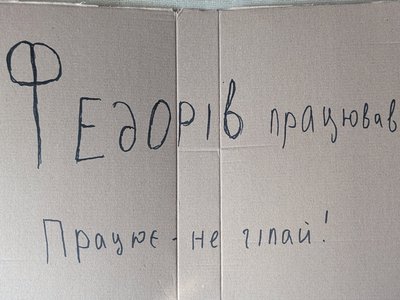 ФЕдОРІВ працював
Працює - не чіпай!